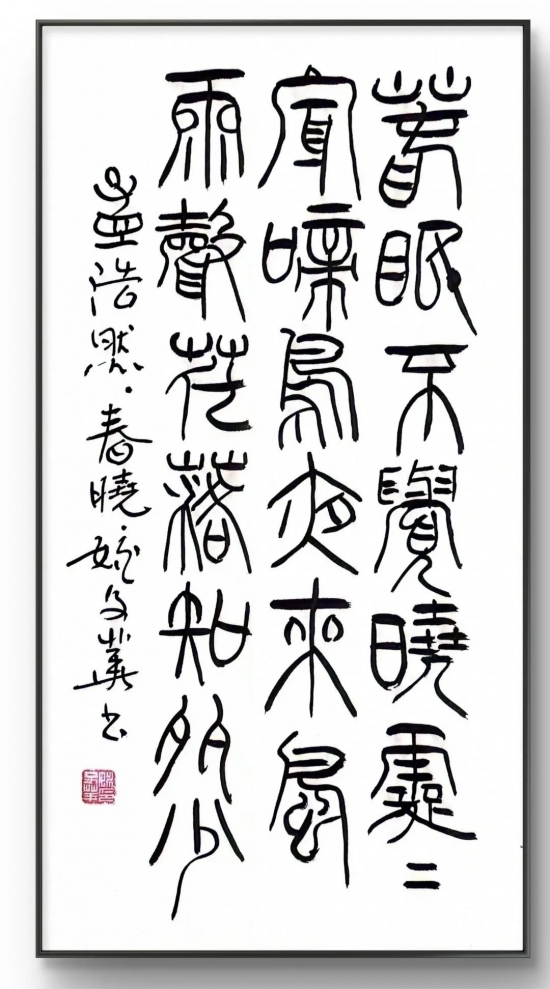 春眠不覺曉處二
聞啼鳥夜來風
雨聲花落知多少
孟浩然·春曉·
書